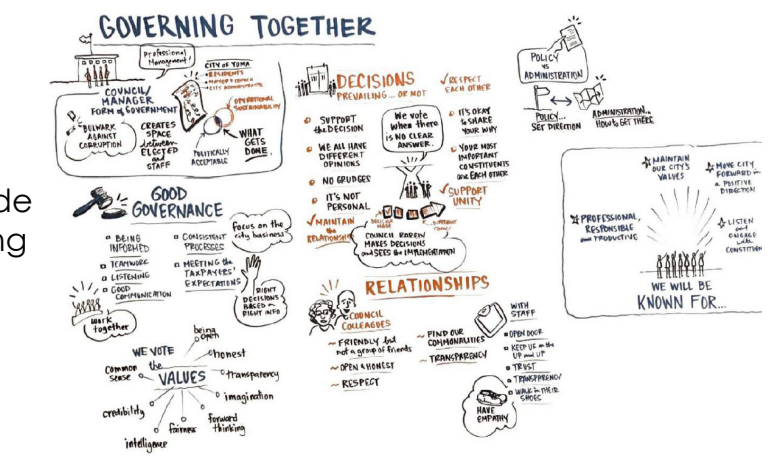 GOVERNING TOGETHER
Professional
Management!
COUNCIL/
MANAGER
FORM of GOVERNMENT
BULWARK
AGAINST
CORRUPTION
CREATES
SPACE
between
ELECTED
and
STAFF
CITY OF YUMA
RESIDENTS
MAYOR & COUNCIL
CITY ADMINISTRATOR
OPERATIONAL
SUSTAINABILITY
POLITICALLY
ACCEPTABLE
WHAT
GETS
DONE.
de
ng
GOOD
GOVERNANCE
BEING
INFORMED
TEAMWORK
LISTENING
GOOD
COMMUNICATION
CONSISTENT
PROCESSES
MEETING the
TAXPAYERS'
EXPECTATIONS
focus on the
city business
RIGHT
DECISIONS
BASED on
RIGHT INFO
work
together
WE VOTE
the
VALUES
being
open
honest
transparency
imagination
forward
thinking
fairness
intelligence
credibility
common
sense
DECISIONS
PREVAILING... OR NOT
SUPPORT
the DECISION
WE ALL HAVE
DIFFERENT
OPINIONS
NO GRUDGES
IT'S NOT
PERSONAL
MAINTAIN
the
RELATIONSHIP
We vote
when there
is NO CLEAR
ANSWER.
RESPECT
EACH OTHER
IT'S OKAY
to SHARE
YOUR WHY
YOUR MOST
IMPORTANT
CONSTITUENTS
are EACH OTHER
SUPPORT
UNITY
DECISION
MADE
COUNCIL
MAKES DECISIONS
and SEES the IMPLEMENTATION
RELATIONSHIPS
COUNCIL
COLLEAGUES
~ FRIENDLY but
not a group of friends
~ OPEN & HONEST
~ RESPECT
~ FIND OUR
COMMONALITIES
~ TRANSPARENCY
WITH
STAFF
OPEN DOOR
KEEP US on the
UP and UP
TRUST
TRANSPARENCY
WALK in THEIR
SHOES
HAVE
EMPATHY
POLICY
vs
ADMINISTRATION
POLICY...
SET DIRECTION
ADMINISTRATION...
HOW to GET THERE
MAINTAIN
OUR CITY'S
VALUES
MOVE CITY
FORWARD in
a POSITIVE
DIRECTION
PROFESSIONAL,
RESPONSIBLE
and PRODUCTIVE
LISTEN
and
ENGAGE
with
CONSTITUEN
WE WILL BE
KNOWN FOR...